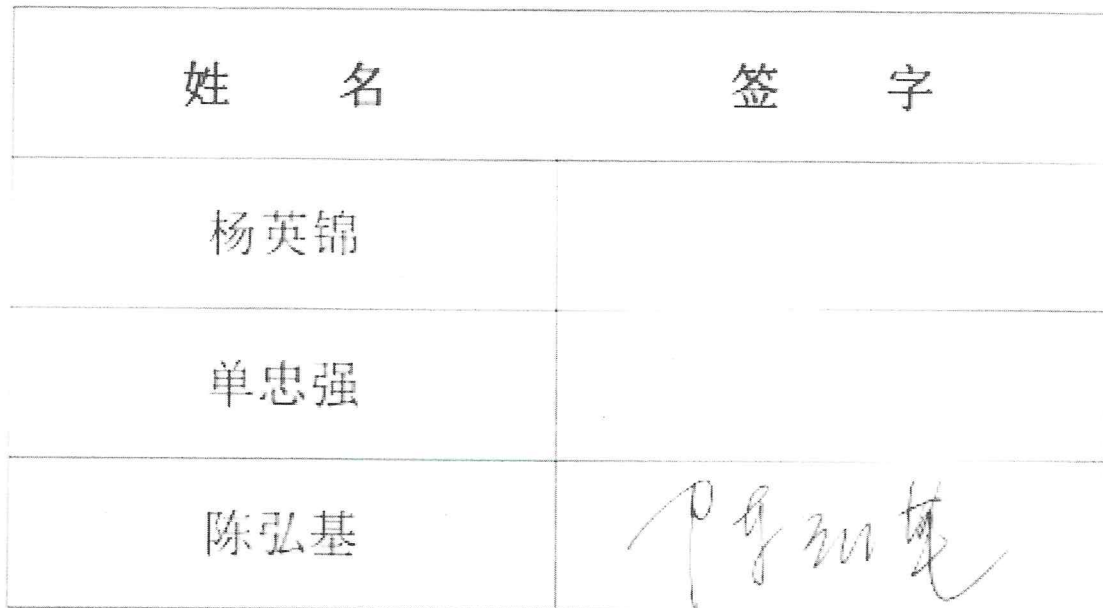 姓 名 签 字
杨英锦
单忠强
陈弘基 陈弘基